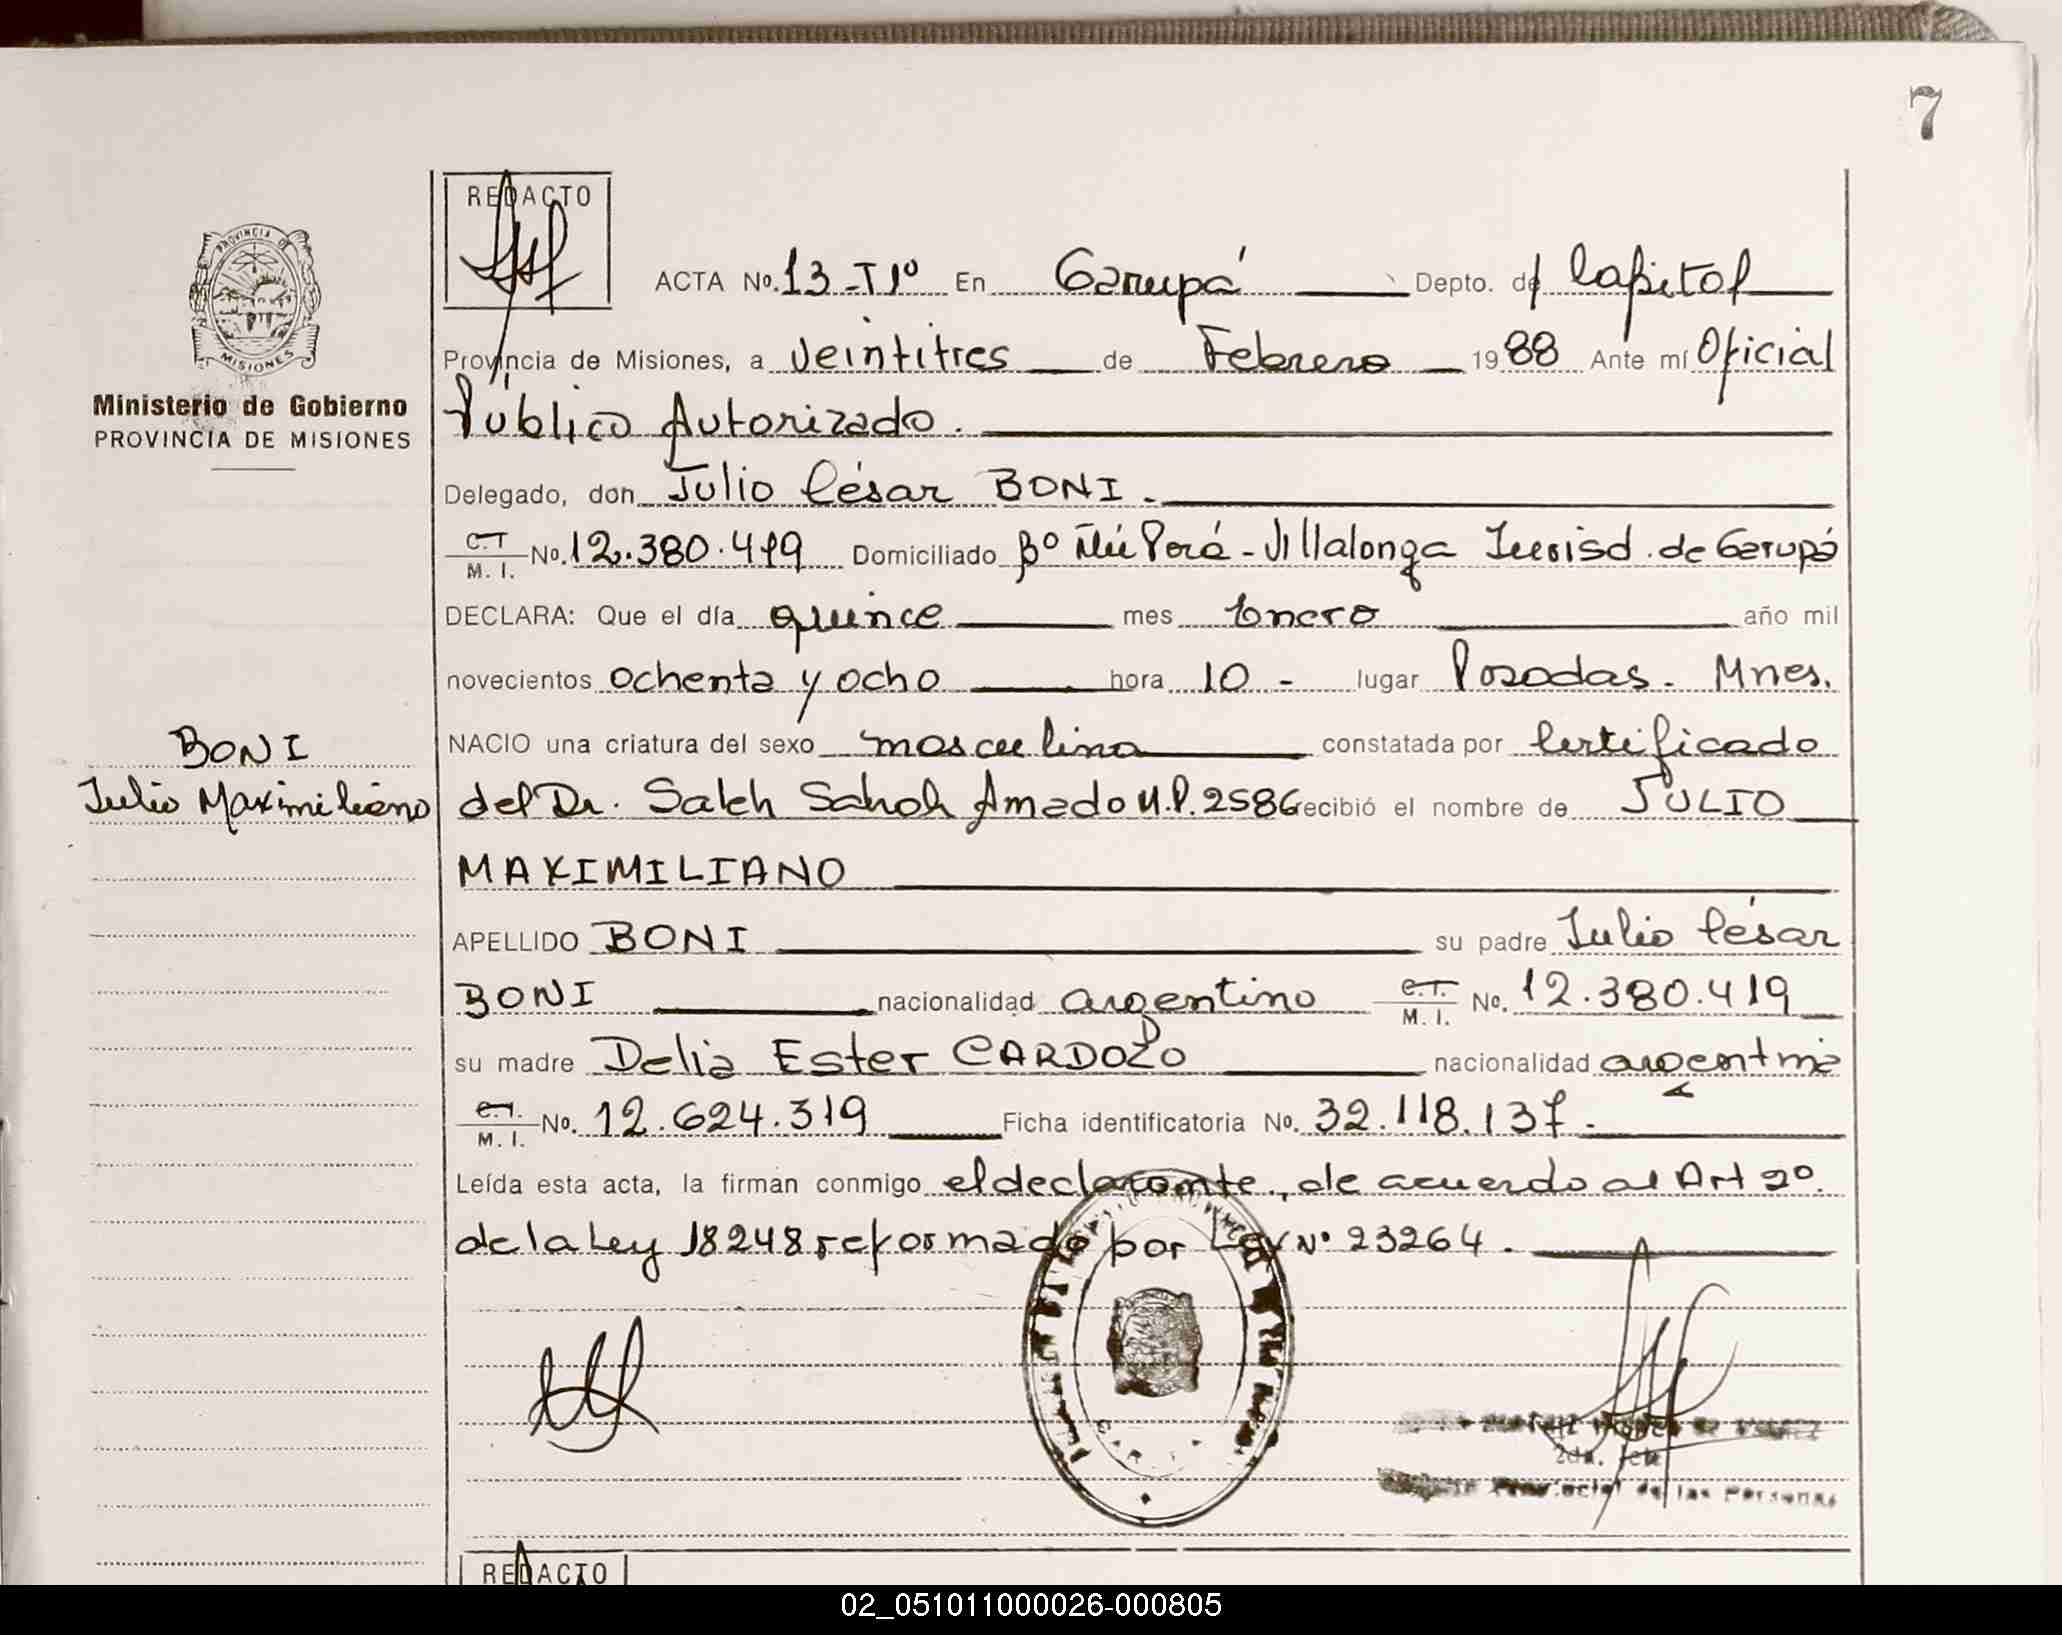 7
REDACTO
PROVINCIA DE
MISIONES
ACTA No. 13 - Tº Iº En Garupá Depto. de Capital
Provincia de Misiones, a veintitres de Febrero 1988 Ante mí Oficial
Ministerio de Gobierno
PROVINCIA DE MISIONES
Público Autorizado.
Delegado, don Julio César BONI.
C.I. M. I. No. 12.380.419 Domiciliado Bº Ñú Porá - Villalonga Jurisd. de Garupá
DECLARA: Que el día quince mes Enero año mil
novecientos ochenta y ocho hora 10 - lugar Posadas. Mnes.
BONI
Julio Maximiliano
NACIO una criatura del sexo masculino constatada por Certificado
del Dr. Saleh Amado M.P. 2586 recibió el nombre de JULIO
MAXIMILIANO
APELLIDO BONI su padre Julio César
BONI nacionalidad argentino C.I. M. I. No. 12.380.419
su madre Delia Ester CARDOZO nacionalidad argentina
C.I. M. I. No. 12.624.319 Ficha identificatoria No. 32.118.137.-
Leída esta acta, la firman conmigo el declarante, de acuerdo al Art 2º.
de la Ley 18248 reformado por Ley Nº 23264.
2da. Jefe
Provincial de las Personas
REDACTO
02_051011000026-000805